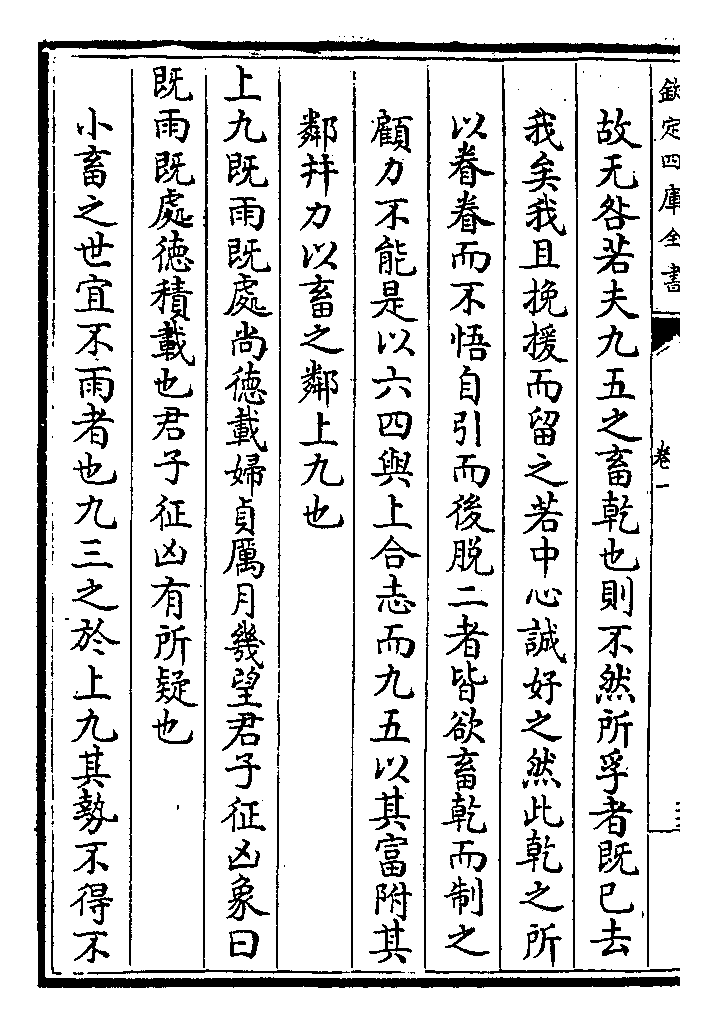 欽定四庫全書
卷一
故无咎若夫九五之畜乾也則不然所孚者既已去
我矣我且挽援而留之若中心誠好之然此乾之所
以眷眷而不悟自引而後脱二者皆欲畜乾而制之
顧力不能是以六四與上合志而九五以其富附其
鄰并力以畜之鄰上九也
上九既雨既處尚德載婦貞厲月幾望君子征凶象曰
既雨既處德積載也君子征凶有所疑也
小畜之世宜不雨者也九三之於上九其勢不得不